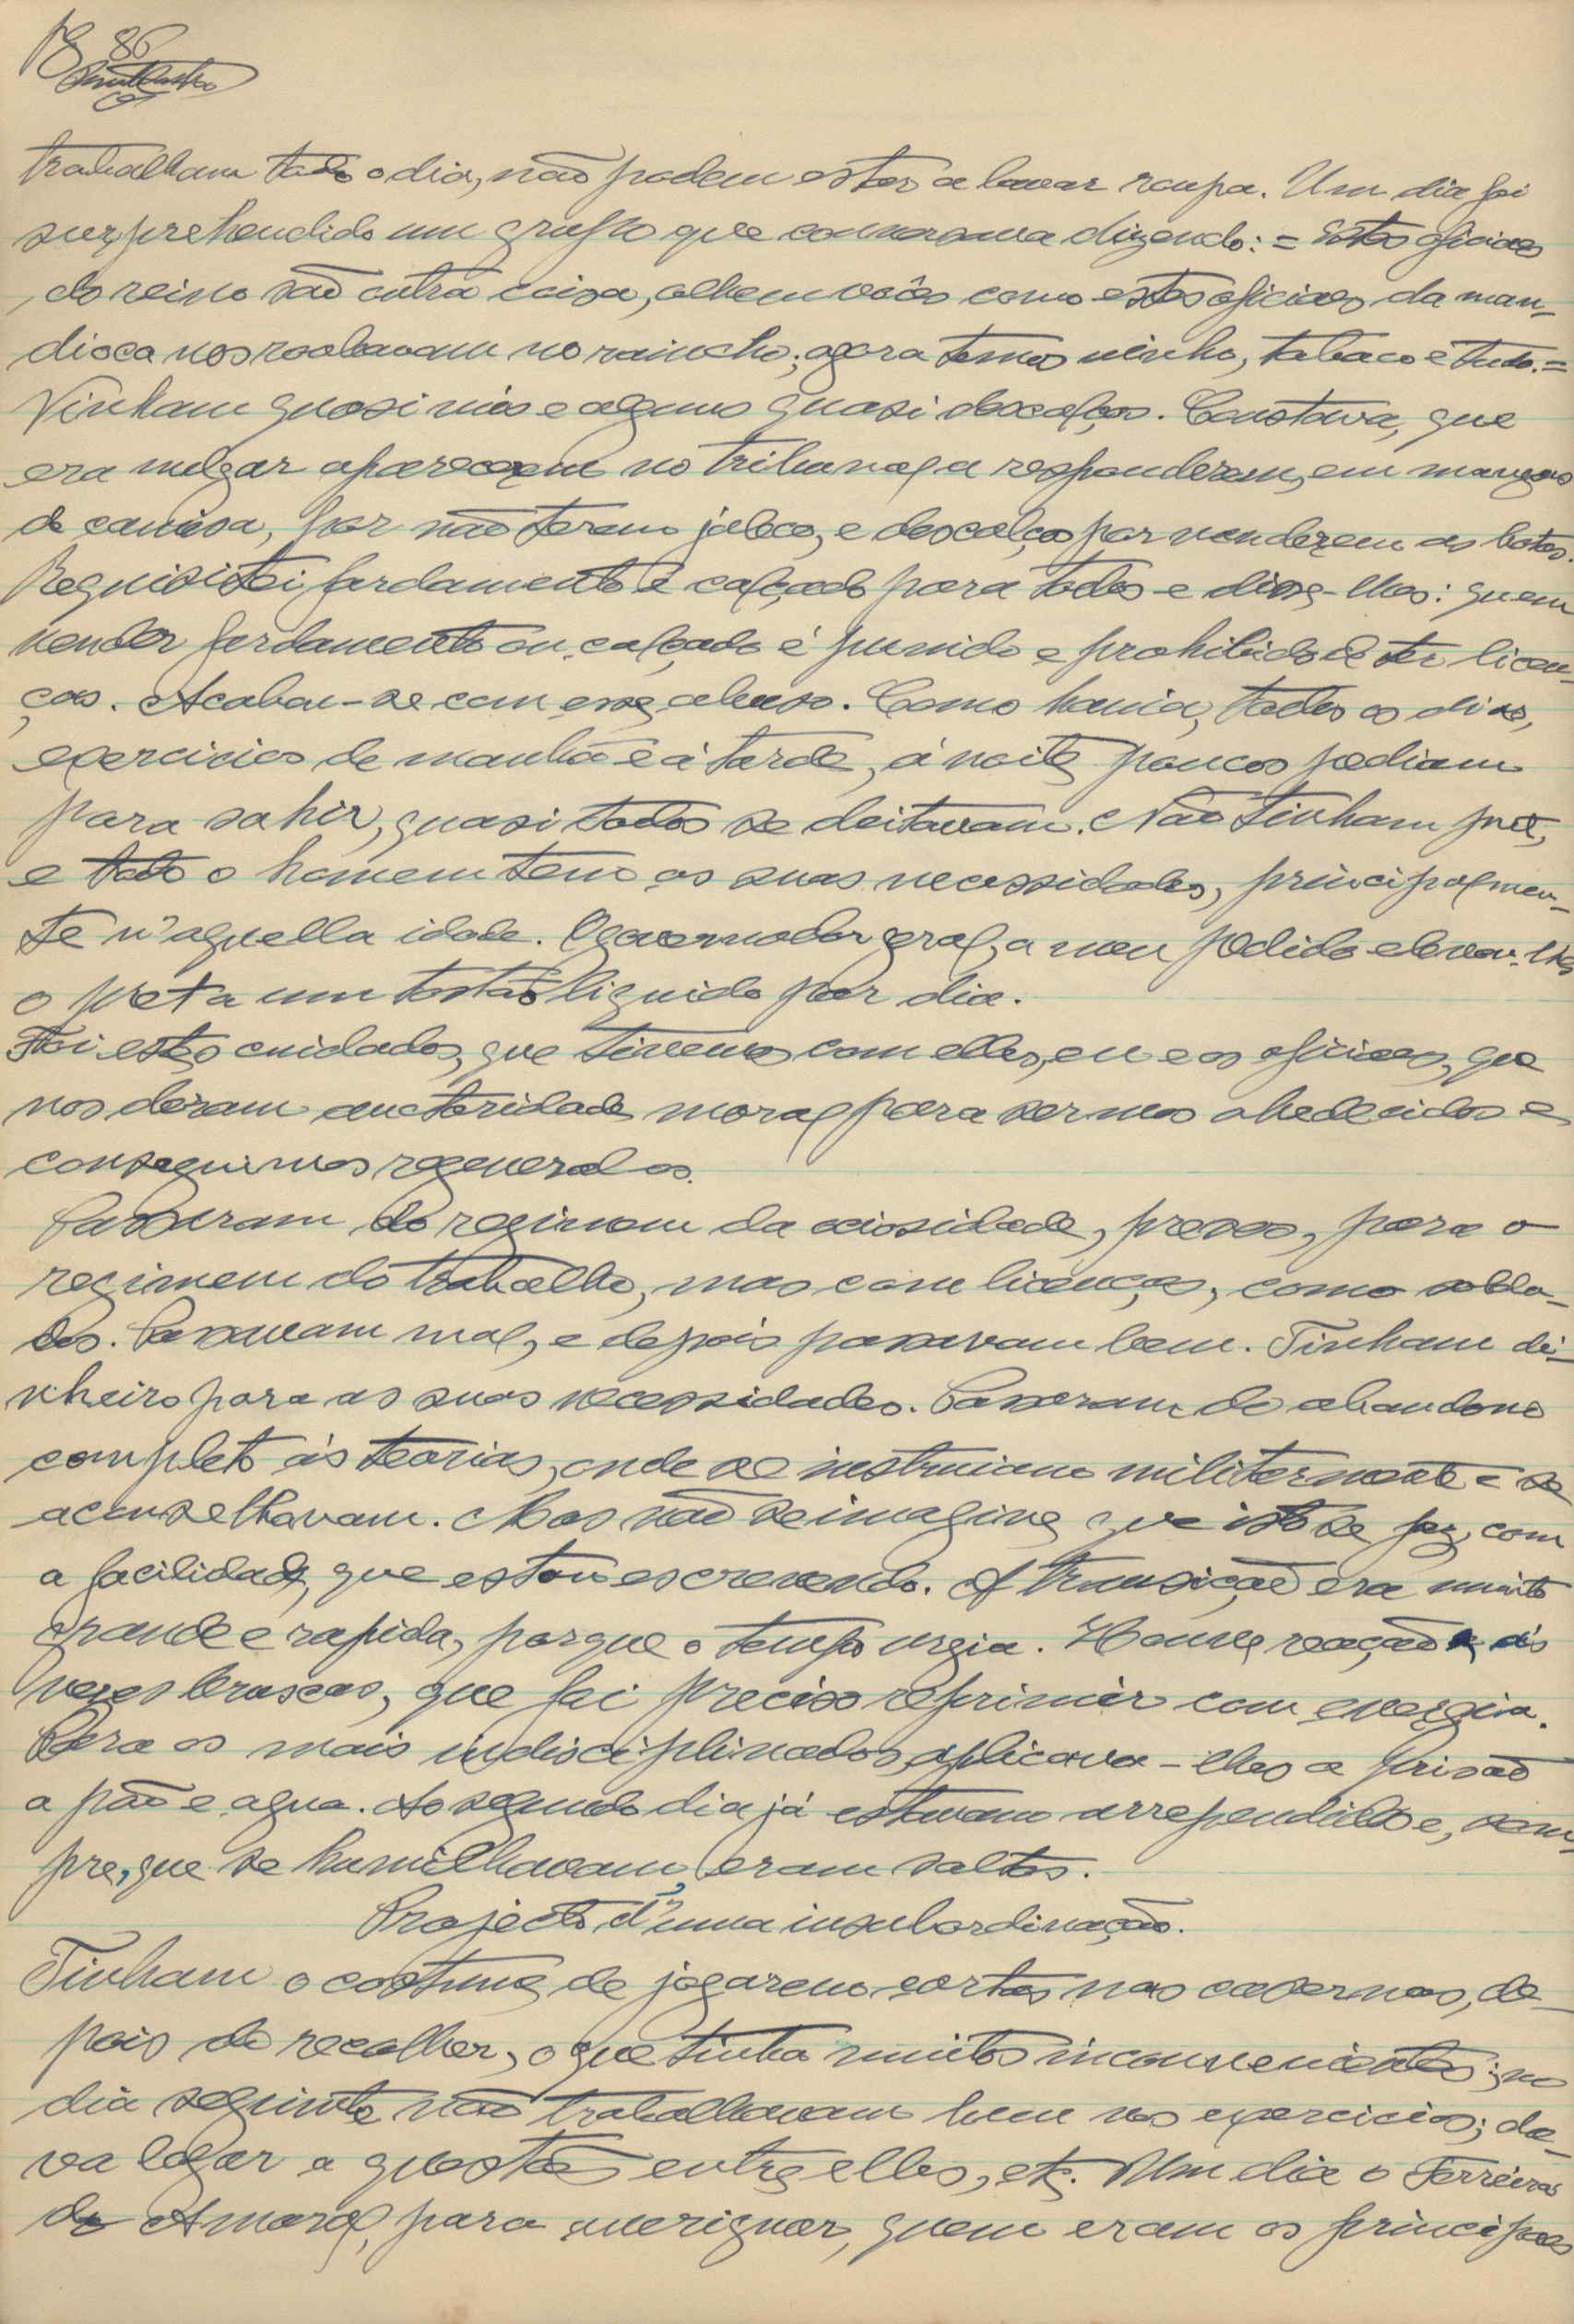 86
trabalham todo o dia, não podem estar a lavar roupa. Um dia foi
surprehendido um grupo que conversava dizendo: = Estes oficiaes
do reino são outra coisa, olhem vocês como estes oficiaes da man-
dioca nos roubavam no rancho; agora temos vinho, tabaco e tudo. =
Vinham quasi nús e alguns quasi descalços. Constava, que
era vulgar aparecerem no tribunal a responderem, em mangas
de camisa, por não terem jaleco, e descalços por venderem as botas.
Requisitei fardamento e calçado para todos e disse-lhes: quem
vender fardamento ou calçado é punido e prohibido de ter licen-
ças. Acabou-se com esse abuso. Como havia, todos os dias,
exercicios de manhã e á tarde, á noite poucos pediam
para sahir, quasi todos se deitavam. Não tinham pret,
e todo o homem tem as suas necessidades, principalmen-
te n'aquella idade. O governador geral, a meu pedido elevou-lhes
o pret a um tostão liquido por dia.
Foi estes cuidados, que tivemos com elles, eu e os oficiaes, que
nos deram auctoridade moral para sermos obedecidos e
conseguirmos regeneral-os.
Passaram do regimen da ociosidade, presos, para o
regimen do trabalho, mas com licenças, como solda-
dos. Passavam mal, e depois passavam bem. Tinham di-
nheiro para as suas necessidades. Passaram do abandono
completo ás teorias, onde se instruiam militarmente e se
aconselhavam. Mas não se imagine que isto se fez, com
a facilidade, que estou escrevendo. A transição era muito
grande e rapida, porque o tempo urgia. Houve reação ás
vezes bruscas, que foi preciso reprimir com energia.
Para os mais indisciplinados, aplicava-lhes a prisão
a pão e agua. Ao segundo dia já estavam arrependidos e, sem-
pre, que se humilhavam, eram soltos.
Projecto d'uma insubordinação.
Tinham o costume de jogarem cartas nas casernas, de-
pois do recolher, o que tinha muitos inconvenientes; no
dia seguinte não trabalhavam bem nos exercicios; da-
va logar a questões entre elles, etc. Um dia o Ferreira
do Amaral, para averiguar, quem eram os principaes